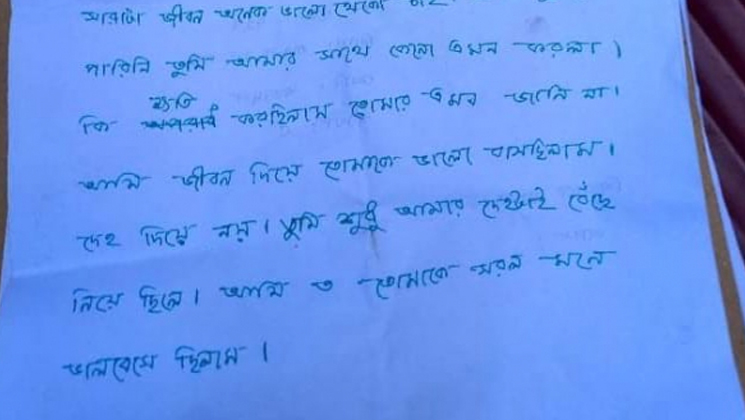 সারাটা জীবন অনেক ভালো থেকো
পারিনি তুমি আমার সাথে কেনো এমন করলা।
ক্ষতি
কি অপরাধ করছিলাম তোমার এমন জানি না।
আমি জীবন দিয়ে তোমাকে ভালো বাসছিলাম।
দেহ দিয়ে নয়। তুমি শুধু আমার দেহটাই বেঁছে
নিয়ে ছিলে। আমি ত তোমাকে সরল মনে
ভালবেসে ছিলাম।